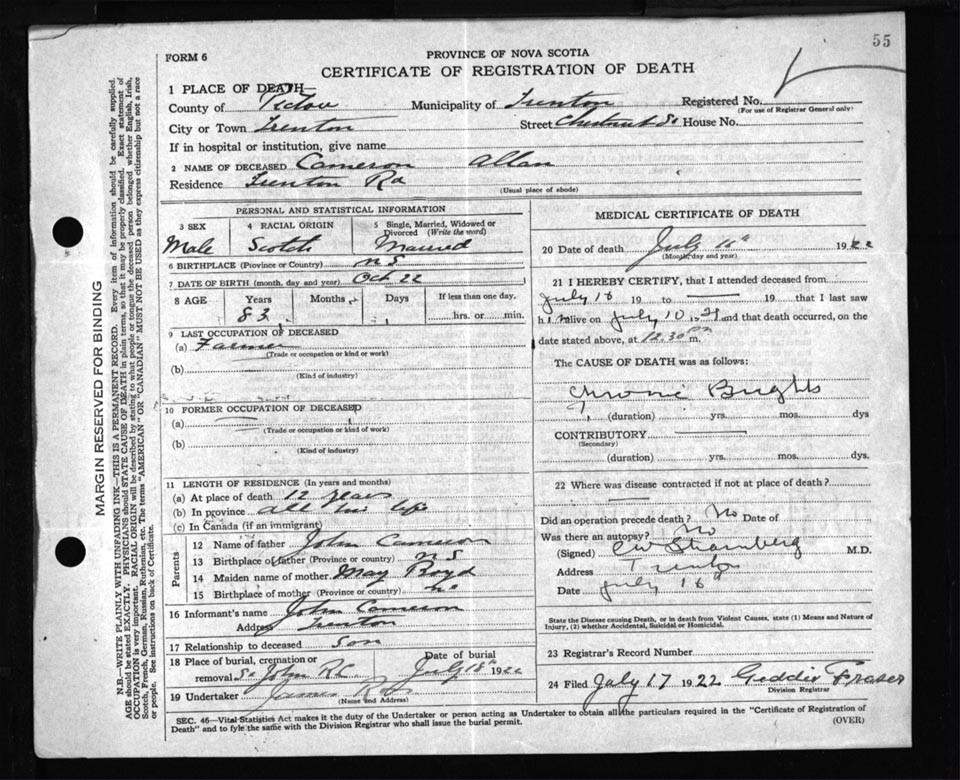 55
FORM 6
PROVINCE OF NOVA SCOTIA
CERTIFICATE OF REGISTRATION OF DEATH
1 PLACE OF DEATH
County of Pictou Municipality of Trenton Registered No.
(For use of Registrar General only)
City or Town Trenton Street Chestnut St House No.
If in hospital or institution, give name
2 NAME OF DECEASED Cameron Allan
Residence Trenton Rd
(Usual place of abode)
PERSONAL AND STATISTICAL INFORMATION
3 SEX 4 RACIAL ORIGIN 5 Single, Married, Widowed or Divorced (Write the word)
Male Scotch Married
6 BIRTHPLACE (Province or Country) N S
7 DATE OF BIRTH (month, day and year) Oct 22
8 AGE Years Months Days If less than one day.
83 hrs. or min.
9 LAST OCCUPATION OF DECEASED
(a) Farmer
(Trade or occupation or kind or work)
(b)
(Kind of industry)
10 FORMER OCCUPATION OF DECEASED
(a)
(Trade or occupation or kind of work)
(b)
(Kind of industry)
11 LENGTH OF RESIDENCE (In years and months)
(a) At place of death 12 years
(b) In province all his life
(c) In Canada (if an immigrant)
Parents
12 Name of father John Cameron
13 Birthplace of father (Province or country) N S
14 Maiden name of mother May Boyd
15 Birthplace of mother (Province or country)
16 Informant's name John Cameron
Address Trenton
17 Relationship to deceased Son
18 Place of burial, cremation or removal St John R.C. Date of burial July 18th 1922
19 Undertaker James
(Name and Address)
MEDICAL CERTIFICATE OF DEATH
20 Date of death July 1922
(Month, day and year)
21 I HEREBY CERTIFY, that I attended deceased from
July 19 to 19 that I last saw
h im alive on July 10 and that death occurred, on
date stated above, at 12.30 pm m.
The CAUSE OF DEATH was as follows:
Chronic Brights
(duration) yrs. mos. dys
CONTRIBUTORY
(Secondary)
(duration) yrs. mos. dys.
22 Where was disease contracted if not at place of death?
Did an operation precede death? No Date of
Was there an autopsy? No
(Signed) M.D.
Address Trenton
Date July 16th
State the Disease causing Death, or in death from Violent Causes, state (1) Means and Nature of
Injury, (2) whether Accidental, Suicidal or Homicidal.
23 Registrar's Record Number
24 Filed July 17 1922 Geddie Fraser
Division Registrar
SEC. 46—Vital Statistics Act makes it the duty of the Undertaker or person acting as Undertaker to obtain all the particulars required in the "Certificate of Registration of
Death" and to fyle the same with the Division Registrar who shall issue the burial permit.
(OVER)
MARGIN RESERVED FOR BINDING
N.B.—WRITE PLAINLY WITH UNFADING INK—THIS IS A PERMANENT RECORD. Every item of information should be carefully supplied.
AGE should be stated EXACTLY. PHYSICIANS should STATE CAUSE OF DEATH in plain terms, so that it may be properly classified. Exact statement of
OCCUPATION is very important. RACIAL ORIGIN will be described by stating to what people or tongue the deceased person belonged whether English, Irish,
Scotch, French, German, Russian, Ruthenian, etc. The terms "AMERICAN" OR "CANADIAN" MUST NOT BE USED as they express citizenship but not a race
or people. See instructions on back of Certificate.